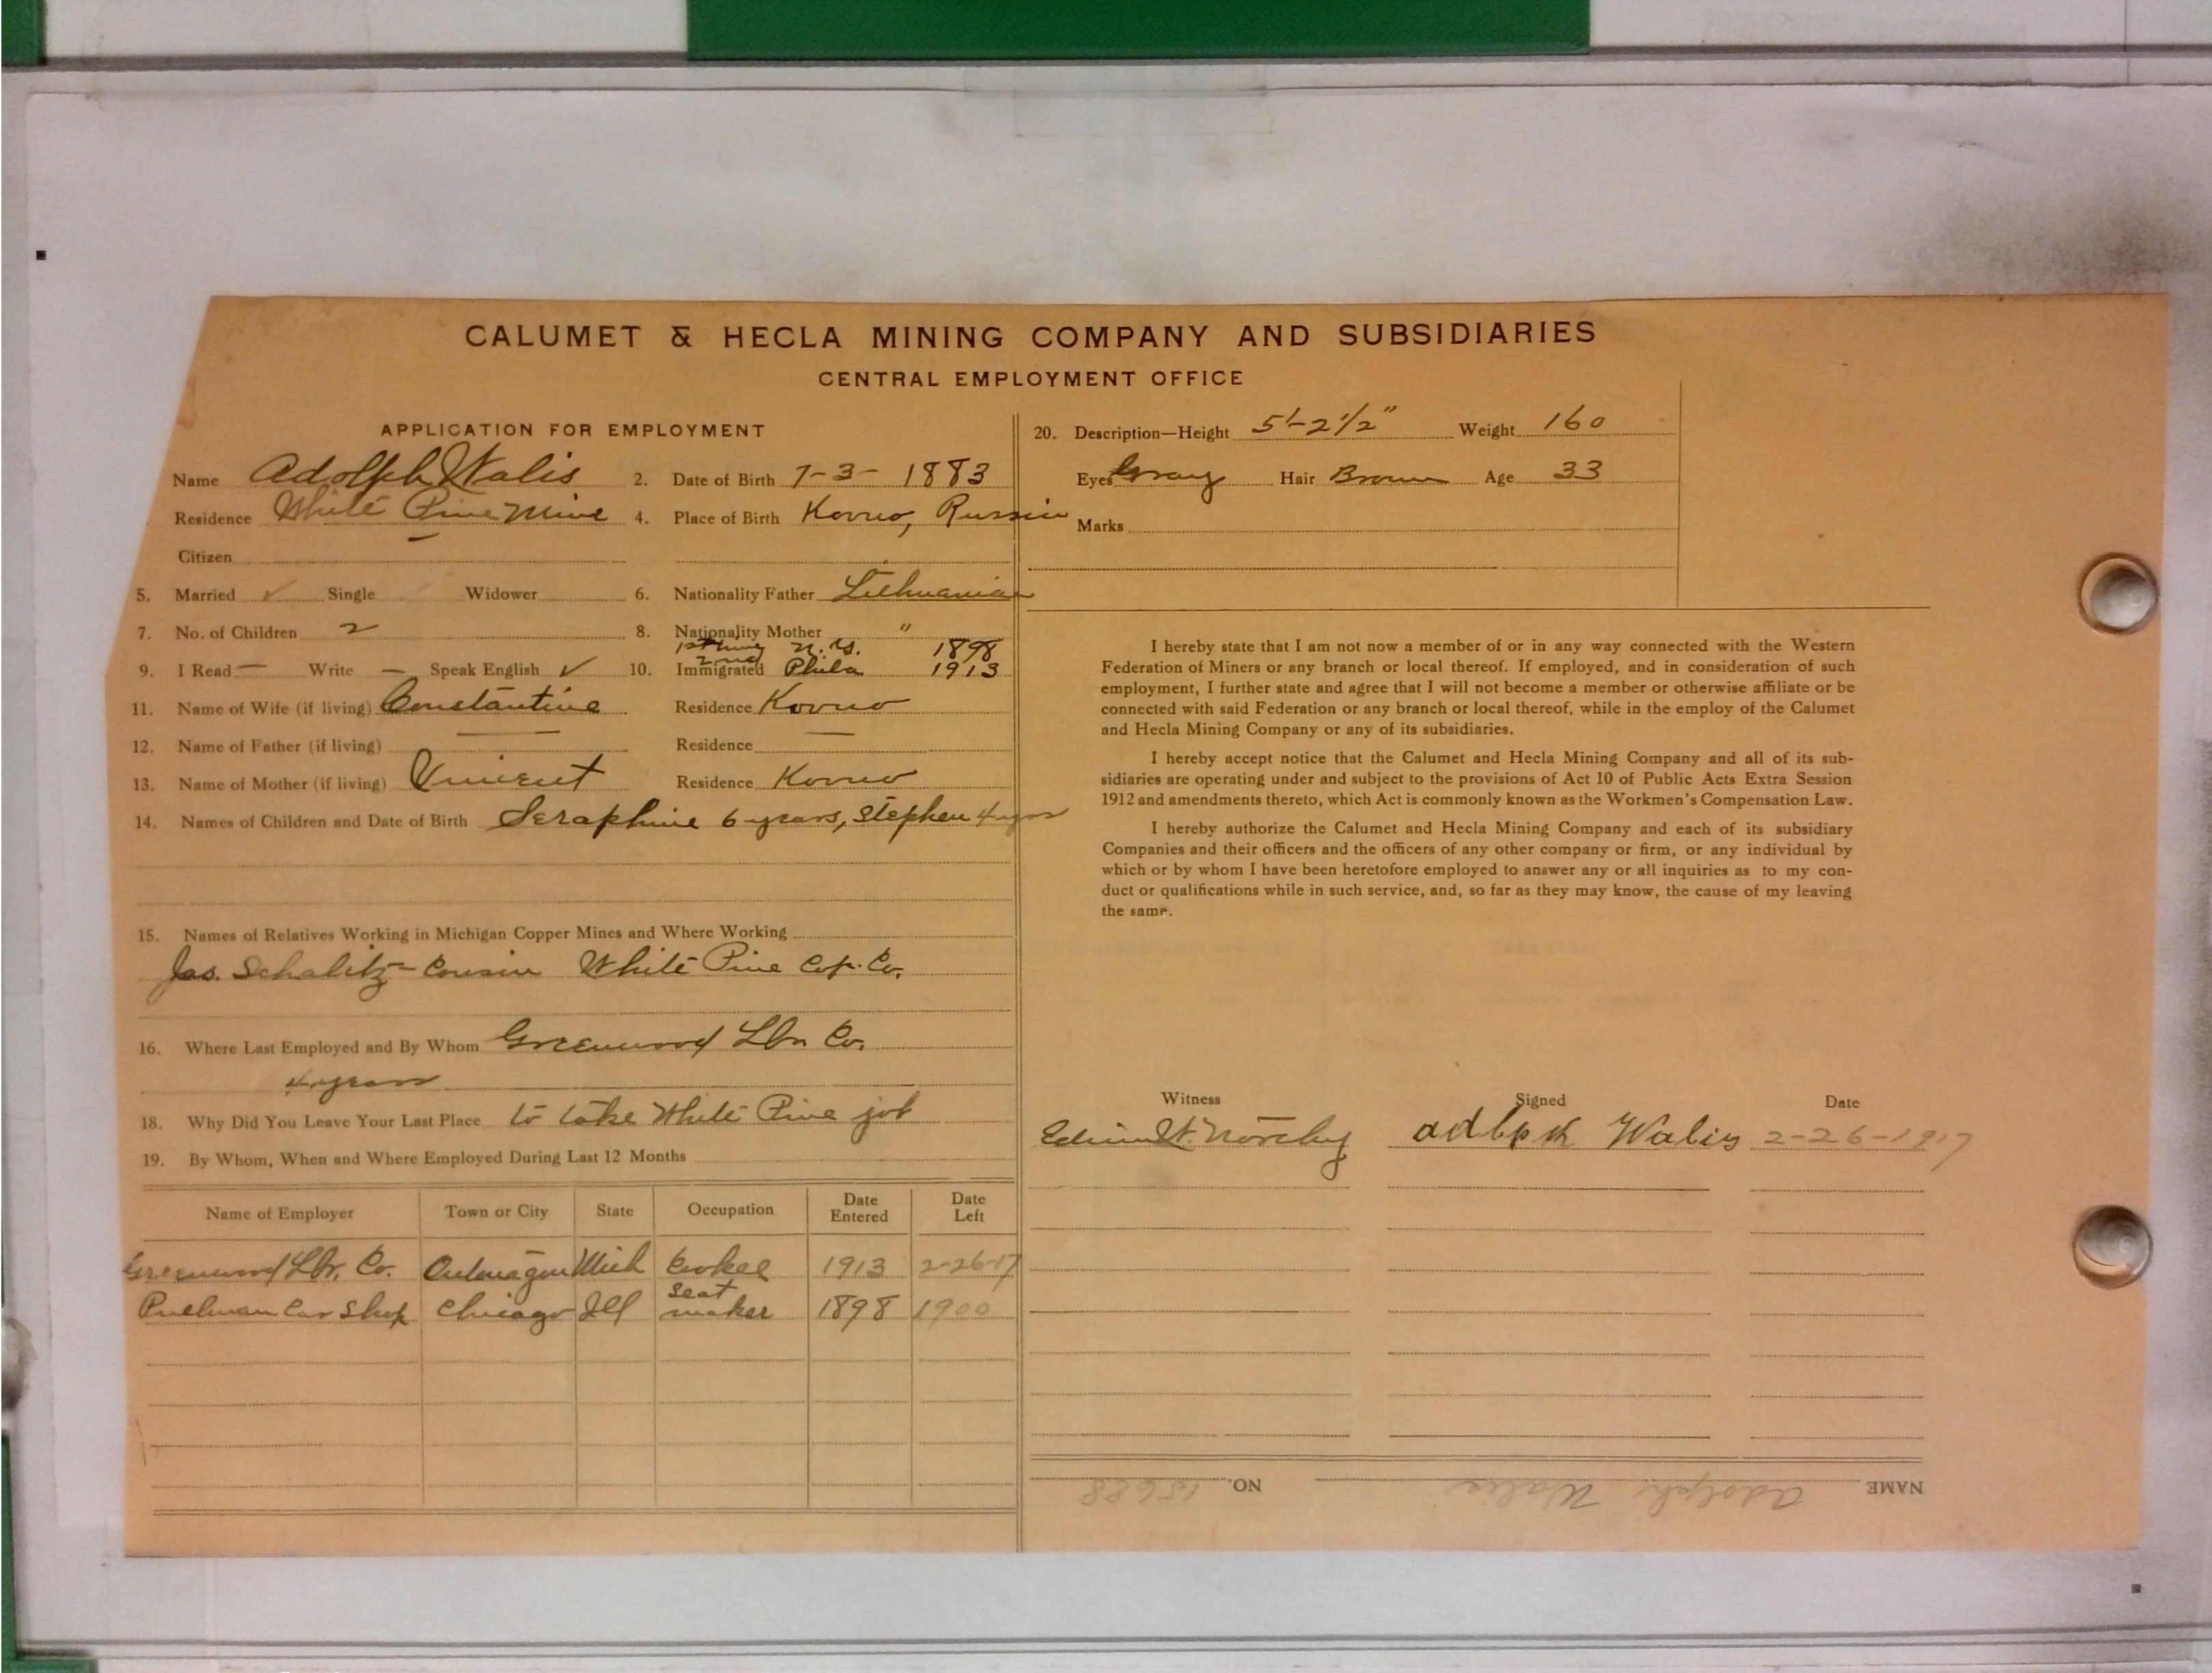 CALUMET & HECLA MINING COMPANY AND SUBSIDIARIES
CENTRAL EMPLOYMENT OFFICE
APPLICATION FOR EMPLOYMENT
Name Adolph Walis 2. Date of Birth 7-3-1883
Residence White Pine Mine 4. Place of Birth Kovno, Russia
Citizen —
5. Married ✓ Single Widower 6. Nationality Father Lithuanian
7. No. of Children 2 8. Nationality Mother "
1st time N.Y. 1898
9. I Read — Write — Speak English ✓ 10. Immigrated 2nd Phila 1913
11. Name of Wife (if living) Constantine Residence Kovno
12. Name of Father (if living) — Residence —
13. Name of Mother (if living) Vincent Residence Kovno
14. Names of Children and Date of Birth Seraphine 6 years, Stephen 4 yrs
15. Names of Relatives Working in Michigan Copper Mines and Where Working
Jas. Schalitz - Cousin White Pine Cop. Co.
16. Where Last Employed and By Whom Greenwood Lbr Co.
4 years
18. Why Did You Leave Your Last Place to take White Pine job
19. By Whom, When and Where Employed During Last 12 Months
Name of Employer Town or City State Occupation Date Entered Date Left
Greenwood Lbr. Co. Ontonagon Mich Cookee 1913 2-26-17
Pullman Car Shop Chicago Ill seat maker 1898 1900
20. Description—Height 5'-2 1/2" Weight 160
Eyes Gray Hair Brown Age 33
Marks
I hereby state that I am not now a member of or in any way connected with the Western
Federation of Miners or any branch or local thereof. If employed, and in consideration of such
employment, I further state and agree that I will not become a member or otherwise affiliate or be
connected with said Federation or any branch or local thereof, while in the employ of the Calumet
and Hecla Mining Company or any of its subsidiaries.
I hereby accept notice that the Calumet and Hecla Mining Company and all of its sub-
sidiaries are operating under and subject to the provisions of Act 10 of Public Acts Extra Session
1912 and amendments thereto, which Act is commonly known as the Workmen's Compensation Law.
I hereby authorize the Calumet and Hecla Mining Company and each of its subsidiary
Companies and their officers and the officers of any other company or firm, or any individual by
which or by whom I have been heretofore employed to answer any or all inquiries as to my con-
duct or qualifications while in such service, and, so far as they may know, the cause of my leaving
the same.
Witness Signed Date
adlpk Walis 2-26-1917
NAME Adolph Walis NO. 15688